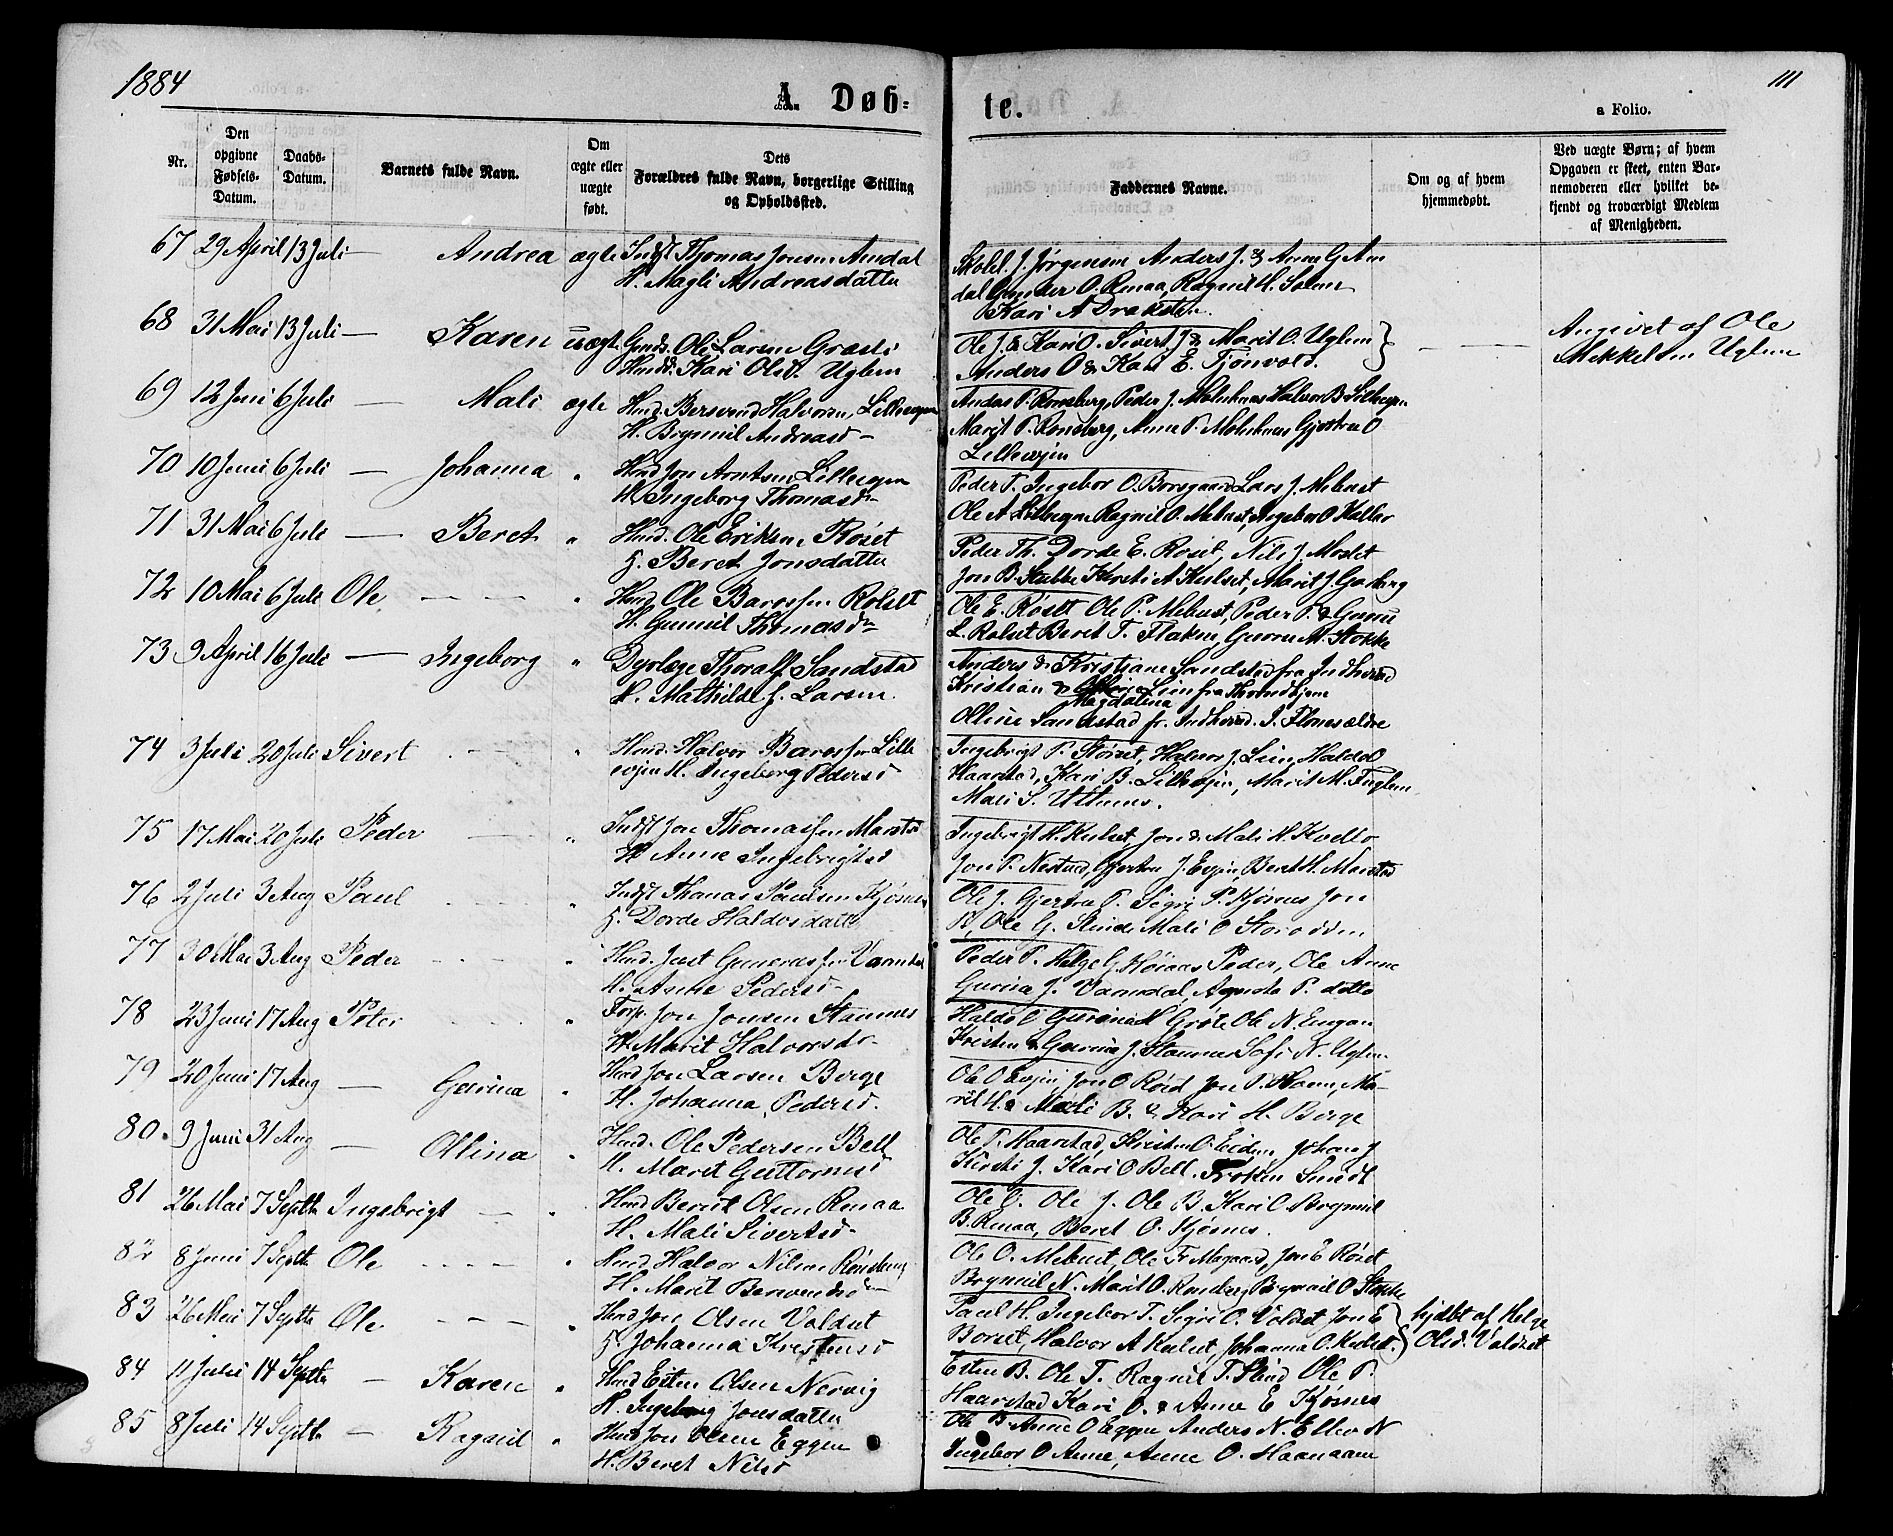 1884
A. Døb-
te.
111
a Folio.
Nr.
Den opgivne Fødsels-Datum.
Daabs-Datum.
Barnets fulde Navn.
Om ægte eller uægte født.
Dets Forældres fulde Navn, borgerlige Stilling og Opholdssted.
Faddernes Navne.
Om og af hvem hjemmedøbt.
Ved uægte Børn; af hvem Opgaven er skeet, enten Barnemoderen eller hvilket bekjendt og troværdigt Medlem af Menigheden.
67 29 April 13 Juli — Andrea ægte Indst Thomas Jonsen Amdal
H. Magli Andreasdatter
J. Jørgensen Anders J. & Anne G Am
dal Gunder O. Renaa, Ragnil H.
Kari A Draksten
68 31 Mai 13 Juli — Karen uægt. Ole Larsen Græsli
Kari Olsd. Uglem
Ole J. & Kari O. Sivert J & Marit O. Uglem
Anders O & Kari E. Fjonvold.
Angivet af Ole
Mikkelsen Uglem
69 12 Juni 6 Juli — Mali ægte Husd. Bersvend Halvorsen, Lilleevjen
H. Brynnil Andreasd
Andas P. Rønsberg, Peder J. Halvor B. Lilleevjen
Marit P. Rønsberg, Anne P. Gjertru O
Lilleevjen
70 10 Juni 6 Juli — Johanna " Husd Jon Arntsen Lilleevjen
H. Ingeborg Thomasd
Peder T. Ingebor O. Borsgaard Lars J. Mebust
Ole A Lilleevjen Ragnil O. Mebust, Ingebor O
71 31 Mai 6 Juli — Beret " Husd. Ole Eriksen Røset
H. Beret Jonsdatter
Peder Th. Dorde E. Røset, Nils J. Moslet
Jon B. Stubbe Kirsti A Kulset, Marit J.
72 10 Mai 6 Juli Ole — — " Husd Ole Barossen Rolset
H. Gunnil Thomasd
Ole E. Røset Ole P. Mebust, Peder P. & Guru
L. Rolset Beret T. Flaknes, Gurru M. Stokke
73 9 April 16 Juli — Ingeborg " Dyrlæge Thoralf Sandstad
H. Mathilde J. Larsen.
Anders & Kristiane Sandstad fra Indherred
Kristian & Lien fra Throndhjem
Magdalina
Olline Sandstad fr. Indherred. J. Flones ældre
74 3 Juli 20 Juli Sivert " Husd. Halvor Barossen Lille
evjen H. Ingeborg Pedersd
Ingebrigt P. Størset, Halvor J. Lien, Haldo O
Haarstad, Kari B. Lilleevjen, Marit M. Fuglem
Mali S. Uthuus.
75 17 Mai 20 Juli Peder — " Indst Jon Thomassen Marstad
H Anne Ingebrigtsd
Ingebrigt H. Kulset, Jon & Mali H. Kvello
Jon P. Nestad, Gjertru J. Evjen Beret H. Marstad
76 2 Juli 3 Aug Paul " Indst Thomas Paulsen Kjøsnes
H. Dorde Haldosdatter
Ole J. Gjertru P. Sigri P. Kjøsnes Jon
P, Ole G. Slind Mali O Storodden
77 30 Mai 3 Aug Peder " Husd. Just Gunnarssen Vamdal
H. Anne Pedersd
Peder P. Helge G. Høiaas Peder, Ole Anne
Gurina J. Vamdal, Agnete P. ditto
78 23 Juni 17 Aug Peter " Forp. Jon Jonsen Stamnes
H. Marit Halvorsd
Haldo O Gurina H Grøte Ole N. Engan
Kristen & Gurina J. Stamnes Sofi N. Uglem
79 20 Juni 17 Aug — Gurina " Husd Jon Larsen Berge
H. Johanna Pedersd.
Ole O Evjen, Jon O Røset Jon P. Hoem, Ma-
rit H. & Mali B. & Kari H. Berge
80. 9 Juni 31 Aug — Ollina " Husd. Ole Pedersen Bell
H. Marit Guttormsd
Ole P. Haarstad, Kirsten O. Eiden Johan J
Kirsti J. Kari O Bell. Frøken Smidt
81 26 Mai 7 Septb Ingebrigt — " Husd Bernt Olsen Renaa
H. Mali Sivertsd
Ole O. Ole J. Ole B. Kari O Brynnil
B. Renaa, Beret O. Kjøsnes.
82 8 Juni 7 Septb Ole — — " Husd Halvor Nilsen Rønsberg
H. Marit Bersvendsd
Ole O. Mebust, Ole Fr Mogaard, Jon E Røset
Brynnil N. Marit O. Rønsberg Brynnil O Stokke
83 26 Mai 7 Septb Ole — — — " Husd Jon Olsen Valdset
H. Johanna Kristensd
Paul H. Ingebor T. Sigri O. Valdset Jon E
Borset, Halvor A Kulset, Johanna O. Kulset.
hjdbt af Helge
Olsd. Valdset
84 11 Juli 14 Septb — Karen " Husd Esten Olsen Nervig
H. Ingeborg Jonsdatter
Esten B. Ole T. Ragnil T. Slind Ole P.
Haarstad Kari O. & Anne E Kjøsnes
85 8 Juli 14 Septb — Ragnil " Husd Jon Olsen Eggen
H. Beret Nilsd
Ole B. Anne O Eggen Anders N. Ellev N
Ingebor O Anne, Anne O. Haanaam